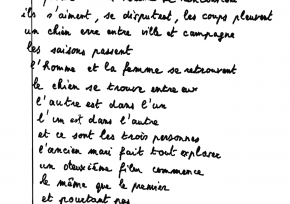 ils s'aiment, se disputent, les coups pleuvent
un chien erre entre ville et campagne
les saisons passent
l'homme et la femme se retrouvent
le chien se trouve entre eux
l'autre est dans l'un
l'un est dans l'autre
et ce sont les trois personnes
l'ancien mari fait tout exploser
un deuxième film commence
le même que le premier
et pourtant pas